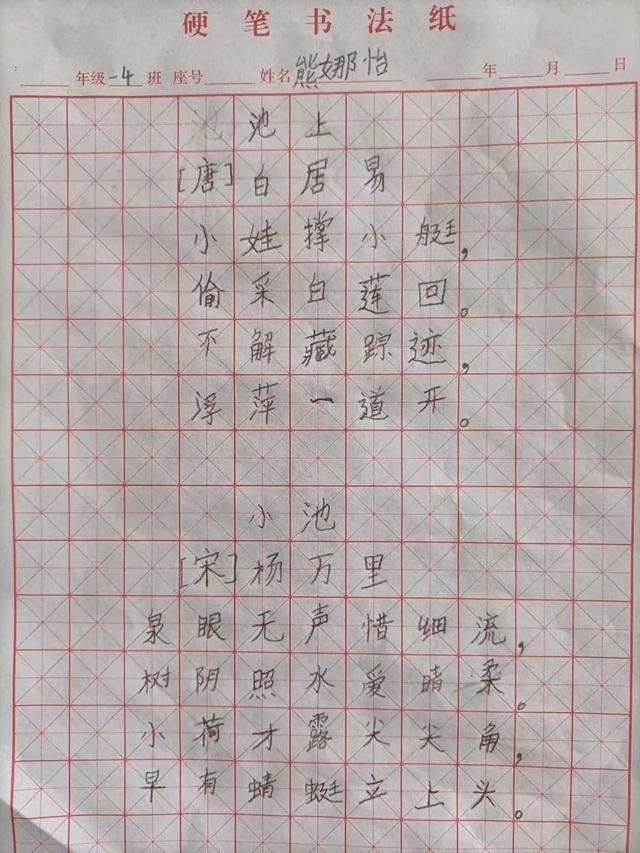 硬笔书法纸
年级-4班 座号 姓名熊娜怡 年 月 日
池池上
[唐]白居易
小娃撑小艇，
偷采白莲回。
不解藏踪迹，
浮萍一道开。
小池
[宋]杨万里
泉眼无声惜细流，
树阴照水爱晴柔。
小荷才露尖尖角，
早有蜻蜓立上头。